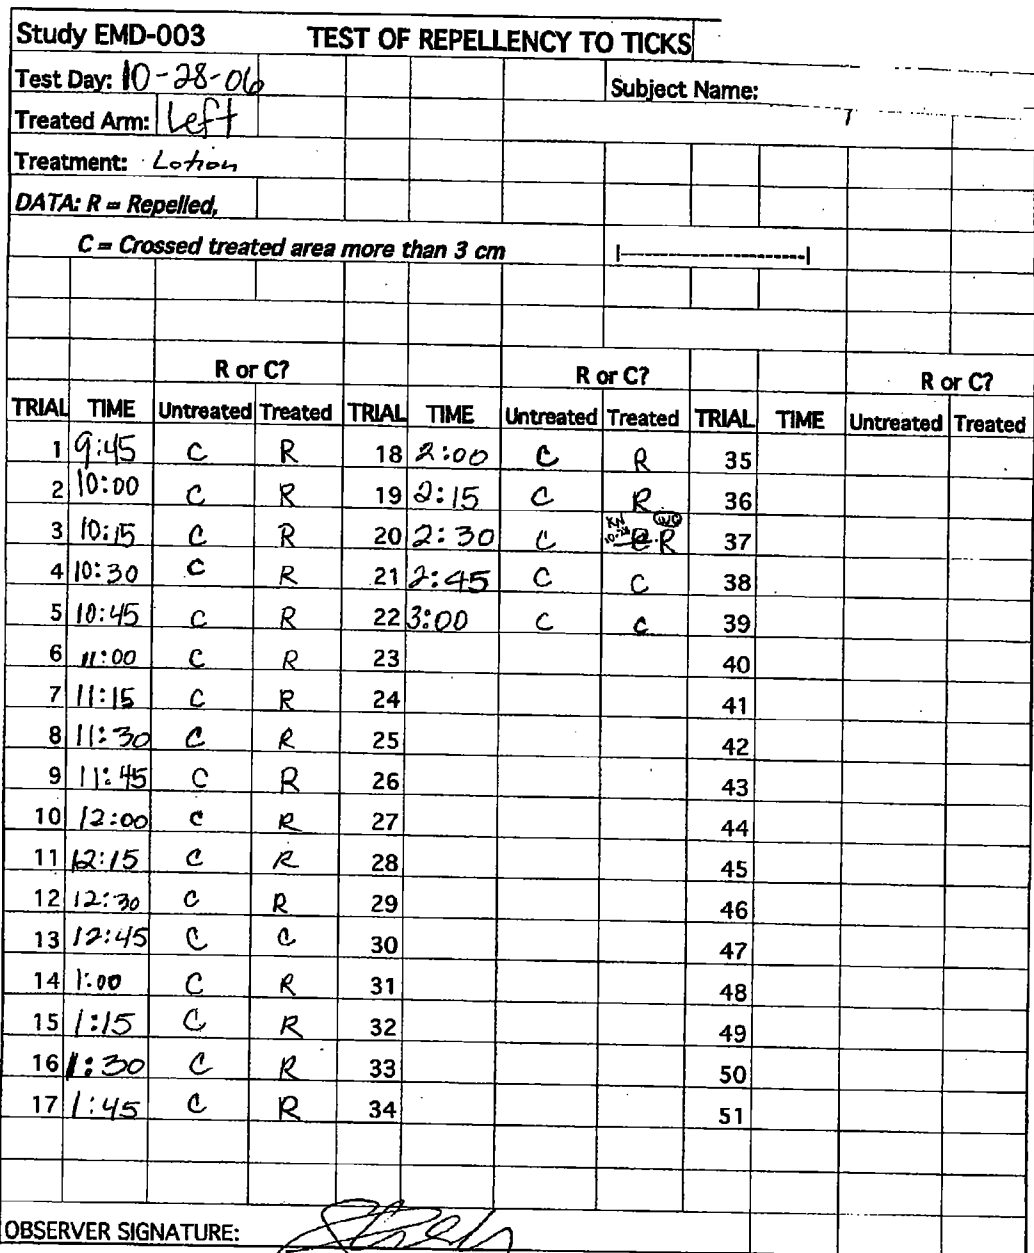 Study EMD-003 TEST OF REPELLENCY TO TICKS
Test Day: 10-28-06 Subject Name:
Treated Arm: Left
Treatment: Lotion
DATA: R = Repelled,
C = Crossed treated area more than 3 cm |----------------------|
R or C? R or C? R or C?
TRIAL TIME Untreated Treated TRIAL TIME Untreated Treated TRIAL TIME Untreated Treated
1 9:45 C R 18 2:00 C R 35
2 10:00 C R 19 2:15 C R 36
3 10:15 C R 20 2:30 C R 37
4 10:30 C R 21 2:45 C C 38
5 10:45 C R 22 3:00 C C 39
6 11:00 C R 23 40
7 11:15 C R 24 41
8 11:30 C R 25 42
9 11:45 C R 26 43
10 12:00 C R 27 44
11 12:15 C R 28 45
12 12:30 C R 29 46
13 12:45 C C 30 47
14 1:00 C R 31 48
15 1:15 C R 32 49
16 1:30 C R 33 50
17 1:45 C R 34 51
OBSERVER SIGNATURE: